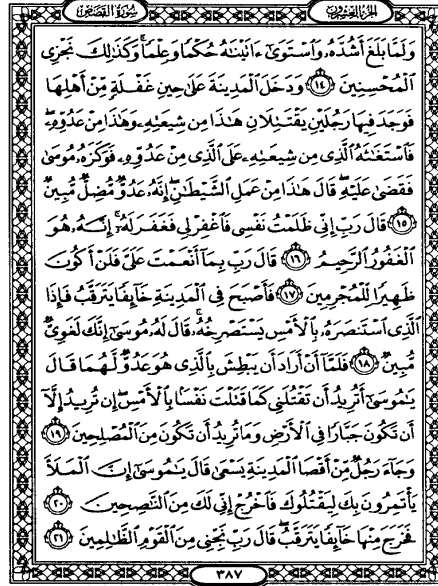 الجزء العشرون سورة القصص
وَلَمَّا بَلَغَ أَشُدَّهُۥ وَٱسْتَوَىٰٓ ءَاتَيْنَٰهُ حُكْمًا وَعِلْمًا ۚ وَكَذَٰلِكَ نَجْزِى
ٱلْمُحْسِنِينَ ١٤ وَدَخَلَ ٱلْمَدِينَةَ عَلَىٰ حِينِ غَفْلَةٍ مِّنْ أَهْلِهَا
فَوَجَدَ فِيهَا رَجُلَيْنِ يَقْتَتِلَانِ هَٰذَا مِن شِيعَتِهِۦ وَهَٰذَا مِنْ عَدُوِّهِۦ ۖ
فَٱسْتَغَٰثَهُ ٱلَّذِى مِن شِيعَتِهِۦ عَلَى ٱلَّذِى مِنْ عَدُوِّهِۦ فَوَكَزَهُۥ مُوسَىٰ
فَقَضَىٰ عَلَيْهِ ۖ قَالَ هَٰذَا مِنْ عَمَلِ ٱلشَّيْطَٰنِ ۖ إِنَّهُۥ عَدُوٌّ مُّضِلٌّ مُّبِينٌ
١٥ قَالَ رَبِّ إِنِّى ظَلَمْتُ نَفْسِى فَٱغْفِرْ لِى فَغَفَرَ لَهُۥٓ ۚ إِنَّهُۥ هُوَ
ٱلْغَفُورُ ٱلرَّحِيمُ ١٦ قَالَ رَبِّ بِمَآ أَنْعَمْتَ عَلَىَّ فَلَنْ أَكُونَ
ظَهِيرًا لِّلْمُجْرِمِينَ ١٧ فَأَصْبَحَ فِى ٱلْمَدِينَةِ خَآئِفًا يَتَرَقَّبُ فَإِذَا
ٱلَّذِى ٱسْتَنصَرَهُۥ بِٱلْأَمْسِ يَسْتَصْرِخُهُۥ ۚ قَالَ لَهُۥ مُوسَىٰٓ إِنَّكَ لَغَوِىٌّ
مُّبِينٌ ١٨ فَلَمَّآ أَنْ أَرَادَ أَن يَبْطِشَ بِٱلَّذِى هُوَ عَدُوٌّ لَّهُمَا قَالَ
يَٰمُوسَىٰٓ أَتُرِيدُ أَن تَقْتُلَنِى كَمَا قَتَلْتَ نَفْسًۢا بِٱلْأَمْسِ ۖ إِن تُرِيدُ إِلَّآ
أَن تَكُونَ جَبَّارًا فِى ٱلْأَرْضِ وَمَا تُرِيدُ أَن تَكُونَ مِنَ ٱلْمُصْلِحِينَ ١٩
وَجَآءَ رَجُلٌ مِّنْ أَقْصَا ٱلْمَدِينَةِ يَسْعَىٰ قَالَ يَٰمُوسَىٰٓ إِنَّ ٱلْمَلَأَ
يَأْتَمِرُونَ بِكَ لِيَقْتُلُوكَ فَٱخْرُجْ إِنِّى لَكَ مِنَ ٱلنَّٰصِحِينَ ٢٠
فَخَرَجَ مِنْهَا خَآئِفًا يَتَرَقَّبُ ۖ قَالَ رَبِّ نَجِّنِى مِنَ ٱلْقَوْمِ ٱلظَّٰلِمِينَ ٢١
٣٨٧